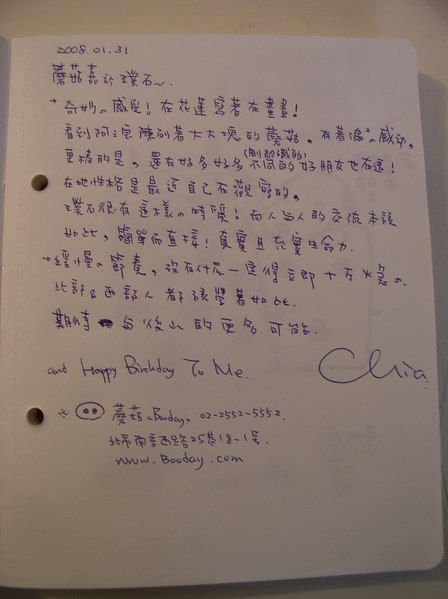 2008.01.31.
蘑菇嘉於璞石～.
→ 奇妙の感受! 在花蓮寫著在畫畫!
看到阿 陳列著大大塊的蘑菇。有著強² の感动。
(剛認識的)
更棒的是，還有好多好多不同的好朋友也在這!
在地性格是最近自己在觀察的。
璞石很有這樣の特質! 而人与人的交流本該
如此，簡單而直接! 真實且充實生命力.
→ 緩慢の節奏，沒有什麼一定得立即十万火急の.
北部&西部人都該學著如此.
期待 与後山的更多可能.
and Happy Birthday To Me.
Chia.
※ 蘑菇.Booday. 02-2552-5552.
北市南京西路25巷18-1号.
www.Booday.com